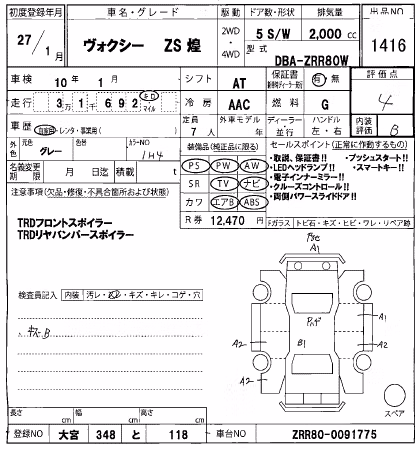 初度登録年月 車名・グレード 駆動 ドア数・形状 排気量 出品NO
27/1月 ヴォクシー ZS 煌 2WD・4WD 5 S/W 2,000 cc 1416
型式 DBA-ZRR80W
車検 10年 1月 シフト AT 保証書 有・無 評価点
走行 3万1千692 キロ マイル 冷房 AAC 燃料 G 4
車歴 自家用・レンタ・事業用( ) 定員 7人 外車モデル 年 ディーラー・並行 ハンドル 左・右 内装評価 B
外色 元色 グレー 色替 カラーNO 1H4
装備品(純正品に限る) セールスポイント(正常に作動するもの)
名義変更期限 月 日 積載 t
PS PW AW
SR TV ナビ
カワ エアB ABS
R券 12,470 円
・取説、保証書!! ・プッシュスタート!!
・LEDヘッドランプ!! ・スマートキー!!
・電子インナーミラー!!
・クルーズコントロール!!
・両側パワースライドドア!!
注意事項(欠品・修復・不具合箇所および状態)
TRDフロントスポイラー
TRDリヤバンパースポイラー
Fガラス トビ石・キズ・ヒビ・ワレ・リペア跡
A1
検査員記入 内装 汚レ・スレ・キズ・キレ・コゲ・穴
キズB
A1
B1
A2 A2
A2
スペア
長さ cm 幅 cm 高さ cm
登録NO 大宮 348 と 118 車台NO ZRR80-0091775